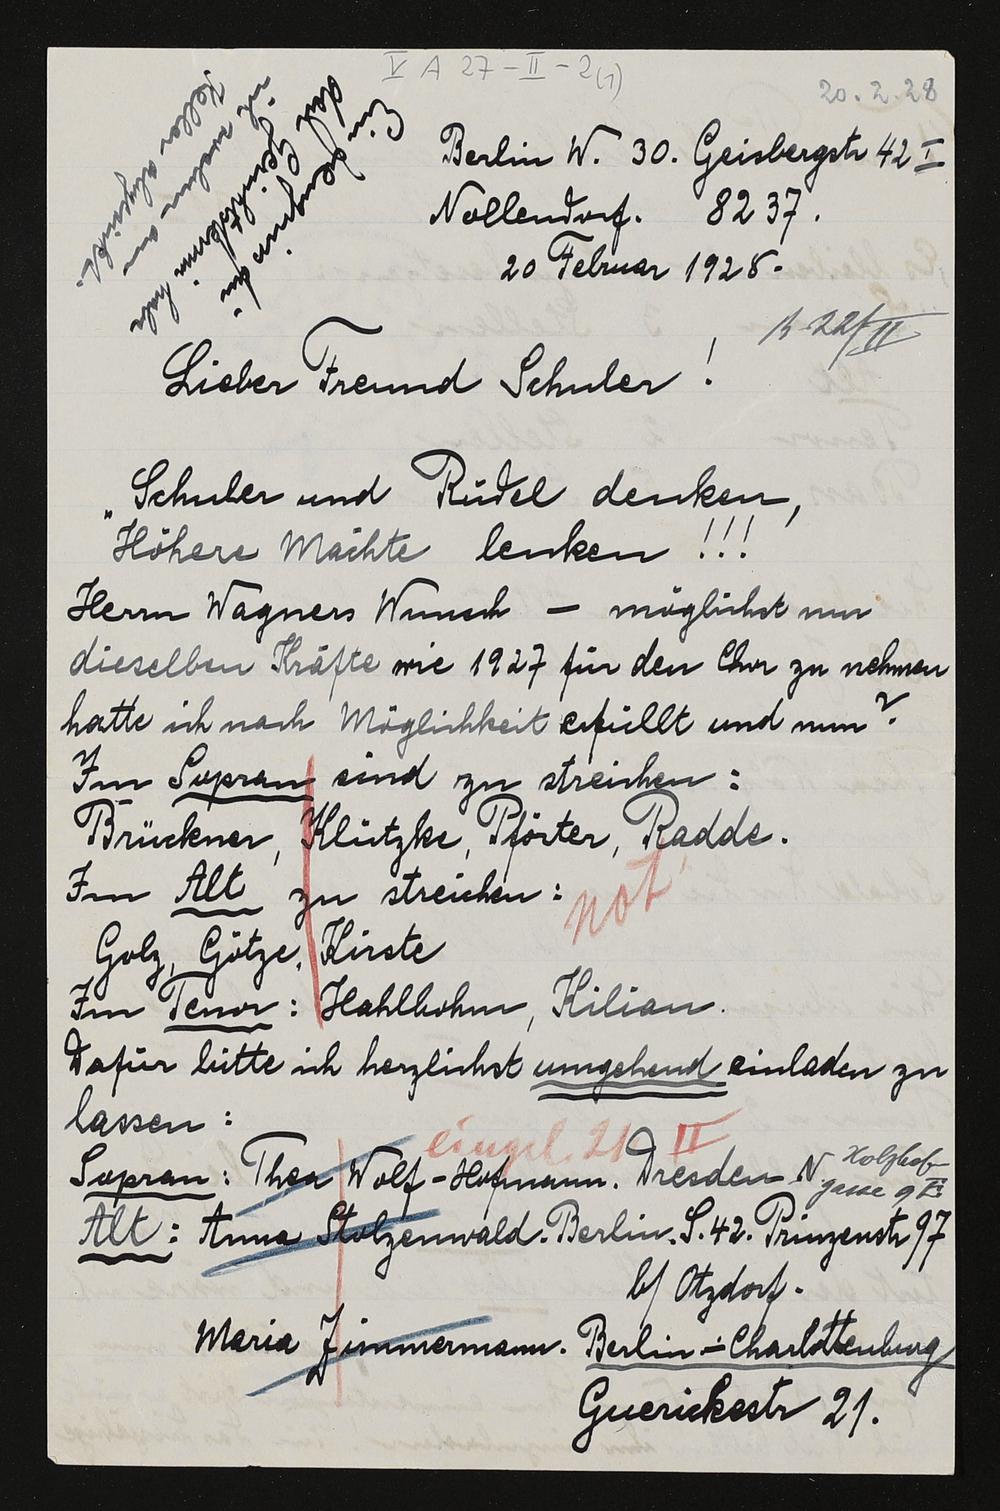 V A 27 - II - 2(1)
20.2.28
Berlin W. 30. Geisbergstr 42 I
Nollendorf. 8237.
20 Februar 1928.
B 22/II
Ein
das
in den
ich
Keller
Lieber Freund Schuler!
„Schuler und Rüdel denken,
Höhere Mächte lenken!!!
Herrn Wagners Wunsch — möglichst nur
dieselben Kräfte wie 1927 für den Chor zu nehmen
hatte ich nach Möglichkeit erfüllt und nun?
Im Sopran sind zu streichen:
Brückner, Klützke, Pförter, Radde.
Im Alt zu streichen:
not!
Golz, Götze, Kirste
Im Tenor: Hahlbohm, Kilian.
Dafür bitte ich herzlichst umgehend einladen zu
lassen:
eingel. 21 II
Sopran: Thea Wolf-Hofmann. Dresden N. Holzhof-
gasse 9 II
Alt: Anna Stolzenwald. Berlin. S. 42. Prinzenstr 97
b/ Otzdorf.
Maria Zimmermann. Berlin-Charlottenburg
Guerickestr 21.